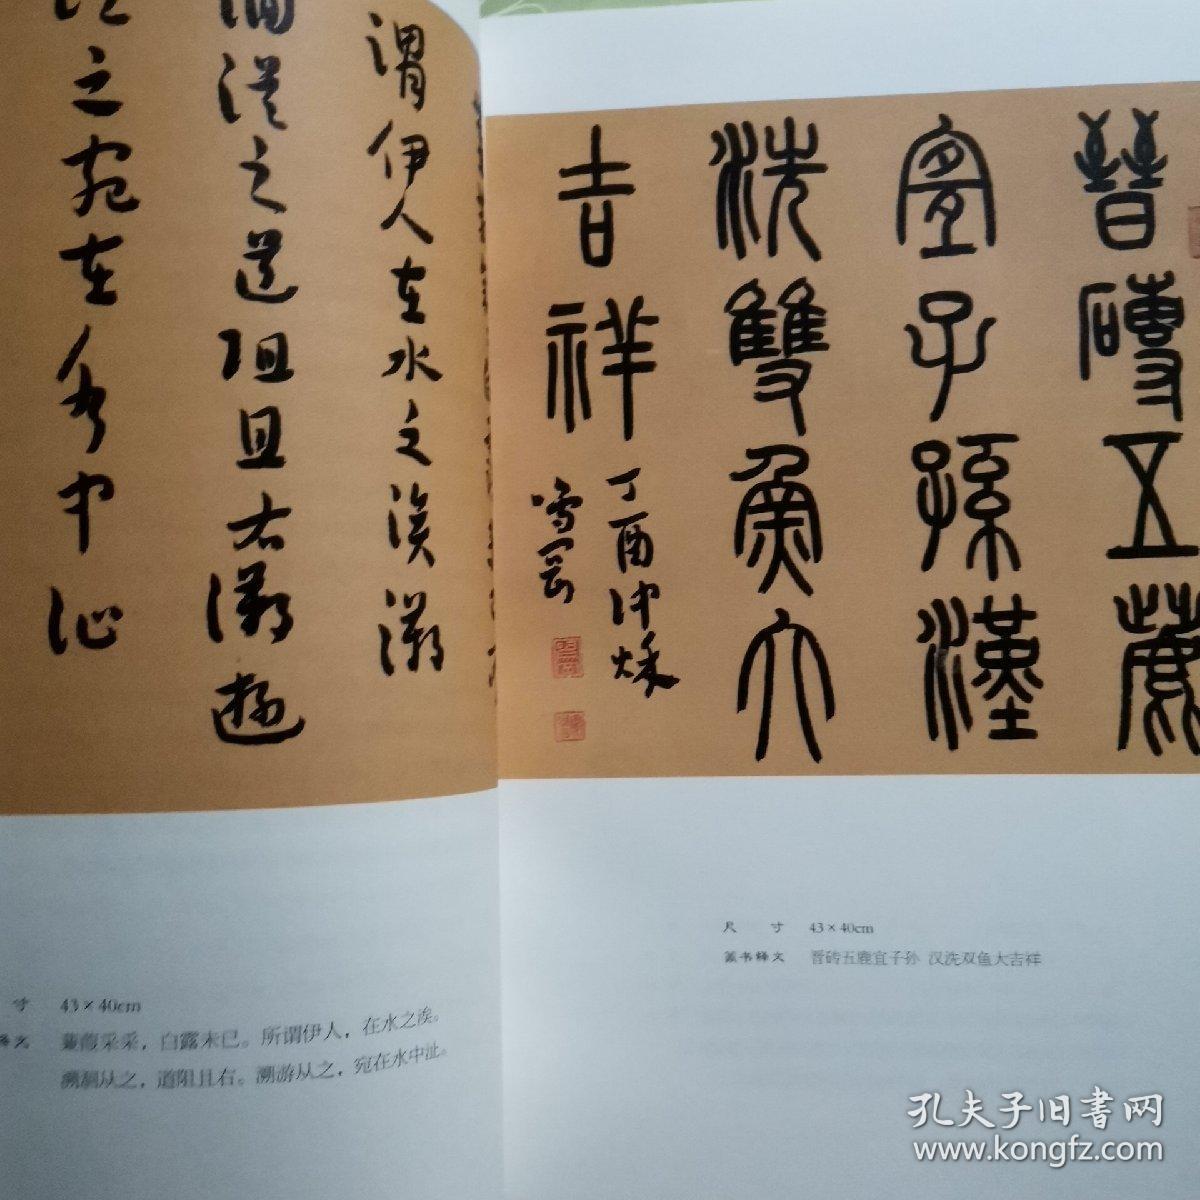 謂伊人在水之涘溯
洄從之道阻且右溯游
從之宛在水中沚
寸 43×40cm
释文 蒹葭采采，白露未已。所谓伊人，在水之涘。
溯洄从之，道阻且右。溯游从之，宛在水中沚。
晉磚五鹿
宜子孫漢
洗雙魚大
吉祥
丁酉仲秋
尺寸 43×40cm
篆书释文 晋砖五鹿宜子孙 汉洗双鱼大吉祥
孔夫子旧书网
www.kongfz.com